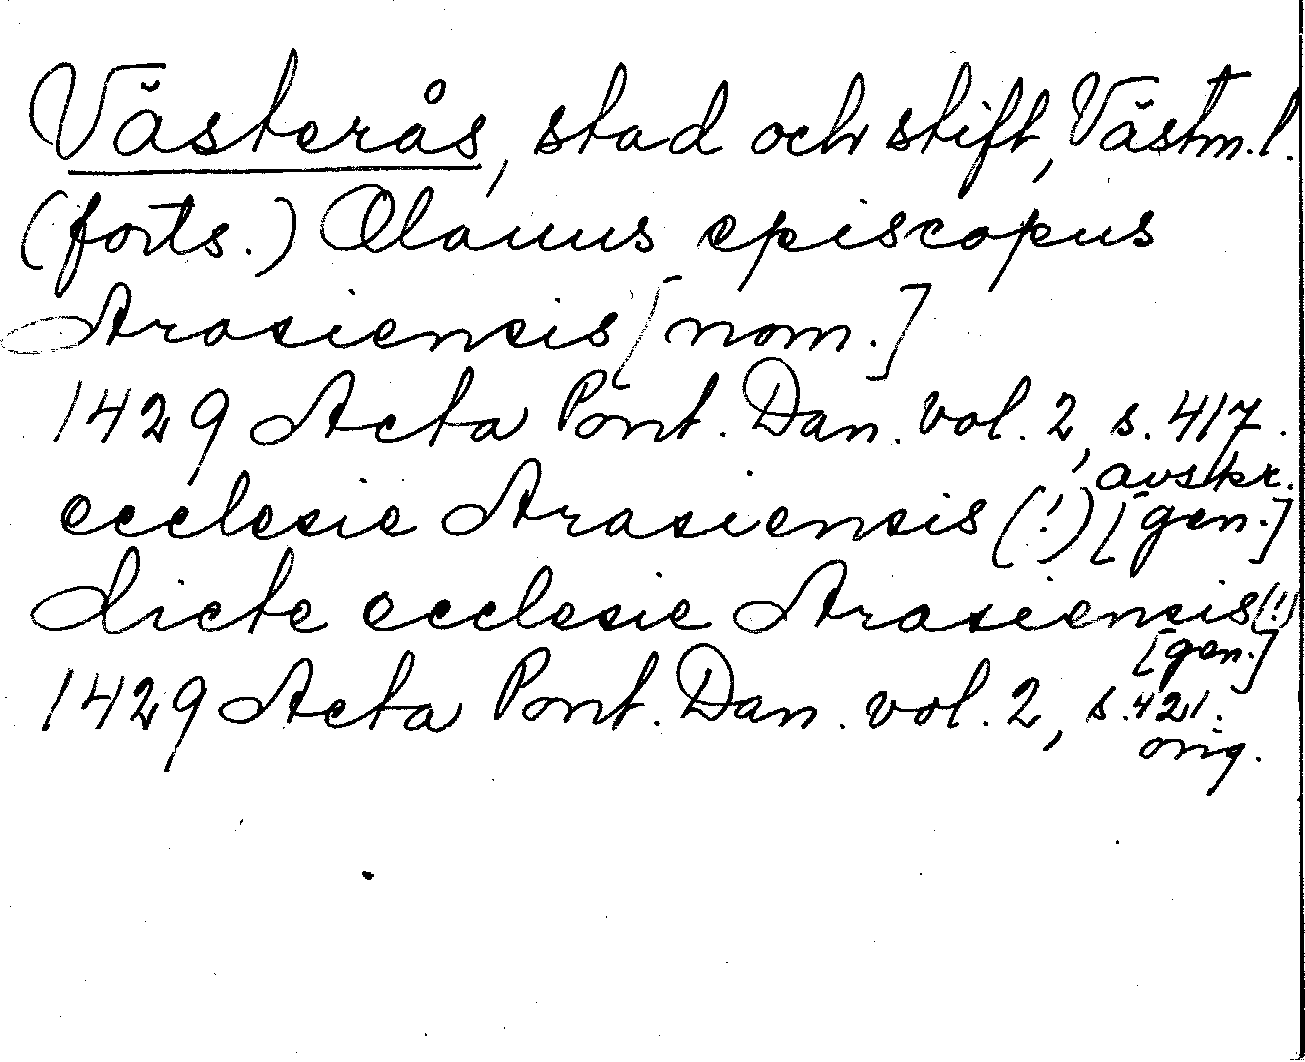 Västerås, stad och stift, Västm.l.
(forts.) Olauus episcopus
Arosiensis [nom.]
1429 Acta Pont. Dan. vol. 2, s. 417.
avskr.
ecclesie Arasiensis (!) [gen.]
dicte ecclesie Arasiensis (!)
[gen.]
1429 Acta Pont. Dan. vol. 2, s. 421.
orig.